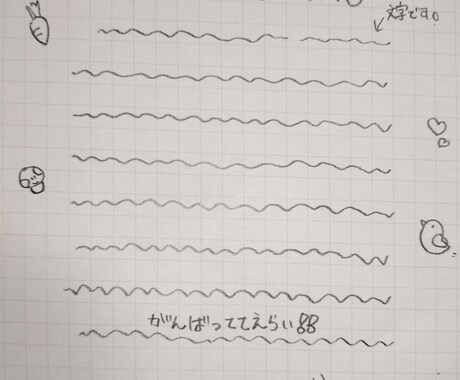 文字です。
がんばっててえらい!!